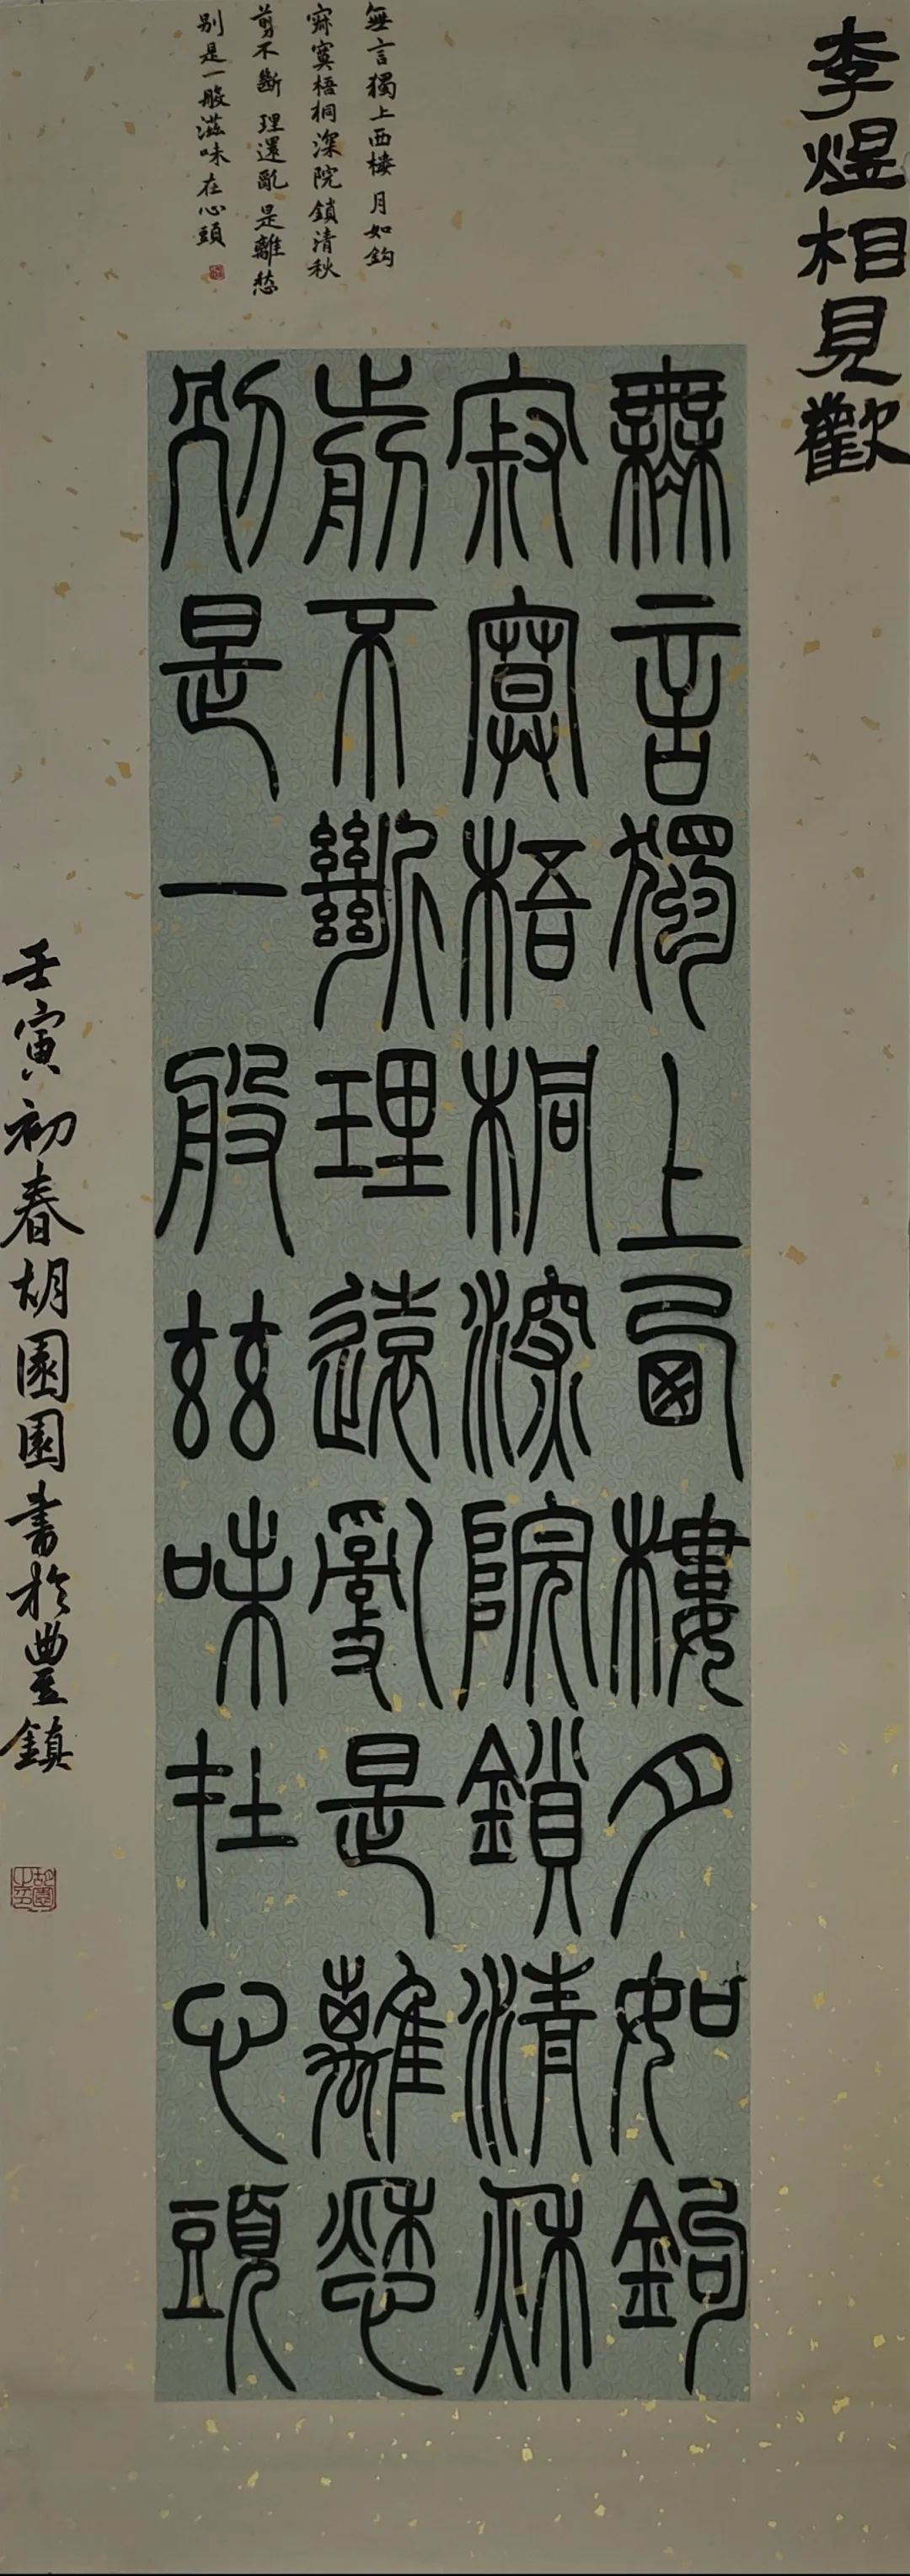 李煜相見歡
無言獨上西樓月如鉤
寂寞梧桐深院鎖清秋
剪不斷理還亂是離愁
別是一般滋味在心頭
無言獨上西樓 月如鈎
寂寞梧桐深院鎖清秋
剪不斷 理還亂 是離愁
别是一般滋味在心頭
壬寅初春胡園園書於豐鎮